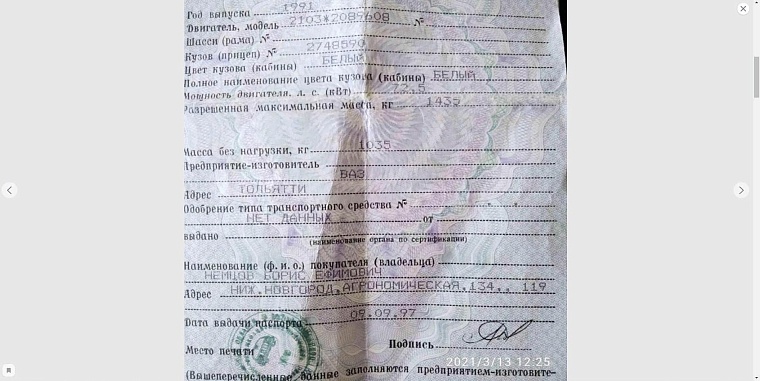 Год выпуска 1991
Двигатель, модель 2103*2089608 №
Шасси (рама) №
Кузов (прицеп) № 2748590
Цвет кузова (кабины) БЕЛЫЙ
Полное наименование цвета кузова (кабины) БЕЛЫЙ
Мощность двигателя, л. с. (кВт)
Разрешенная максимальная масса, кг 1435
Масса без нагрузки, кг 1035
Предприятие-изготовитель
ВАЗ
Адрес ТОЛЬЯТТИ
Одобрение типа транспортного средства №
НЕТ ДАННЫХ от
выдано
(наименование органа по сертификации)
Наименование (ф. и. о.) покупателя (владельца)
НЕМЦОВ БОРИС ЕФИМОВИЧ
Адрес НИЖ.НОВГОРОД,АГРОНОМИЧЕСКАЯ,134,, 119
Дата выдачи паспорта 09.09.97
Подпись
Место печати
2021/3/13 12:25
(Вышеперечисленные данные заполняются предприятием-изготовите-